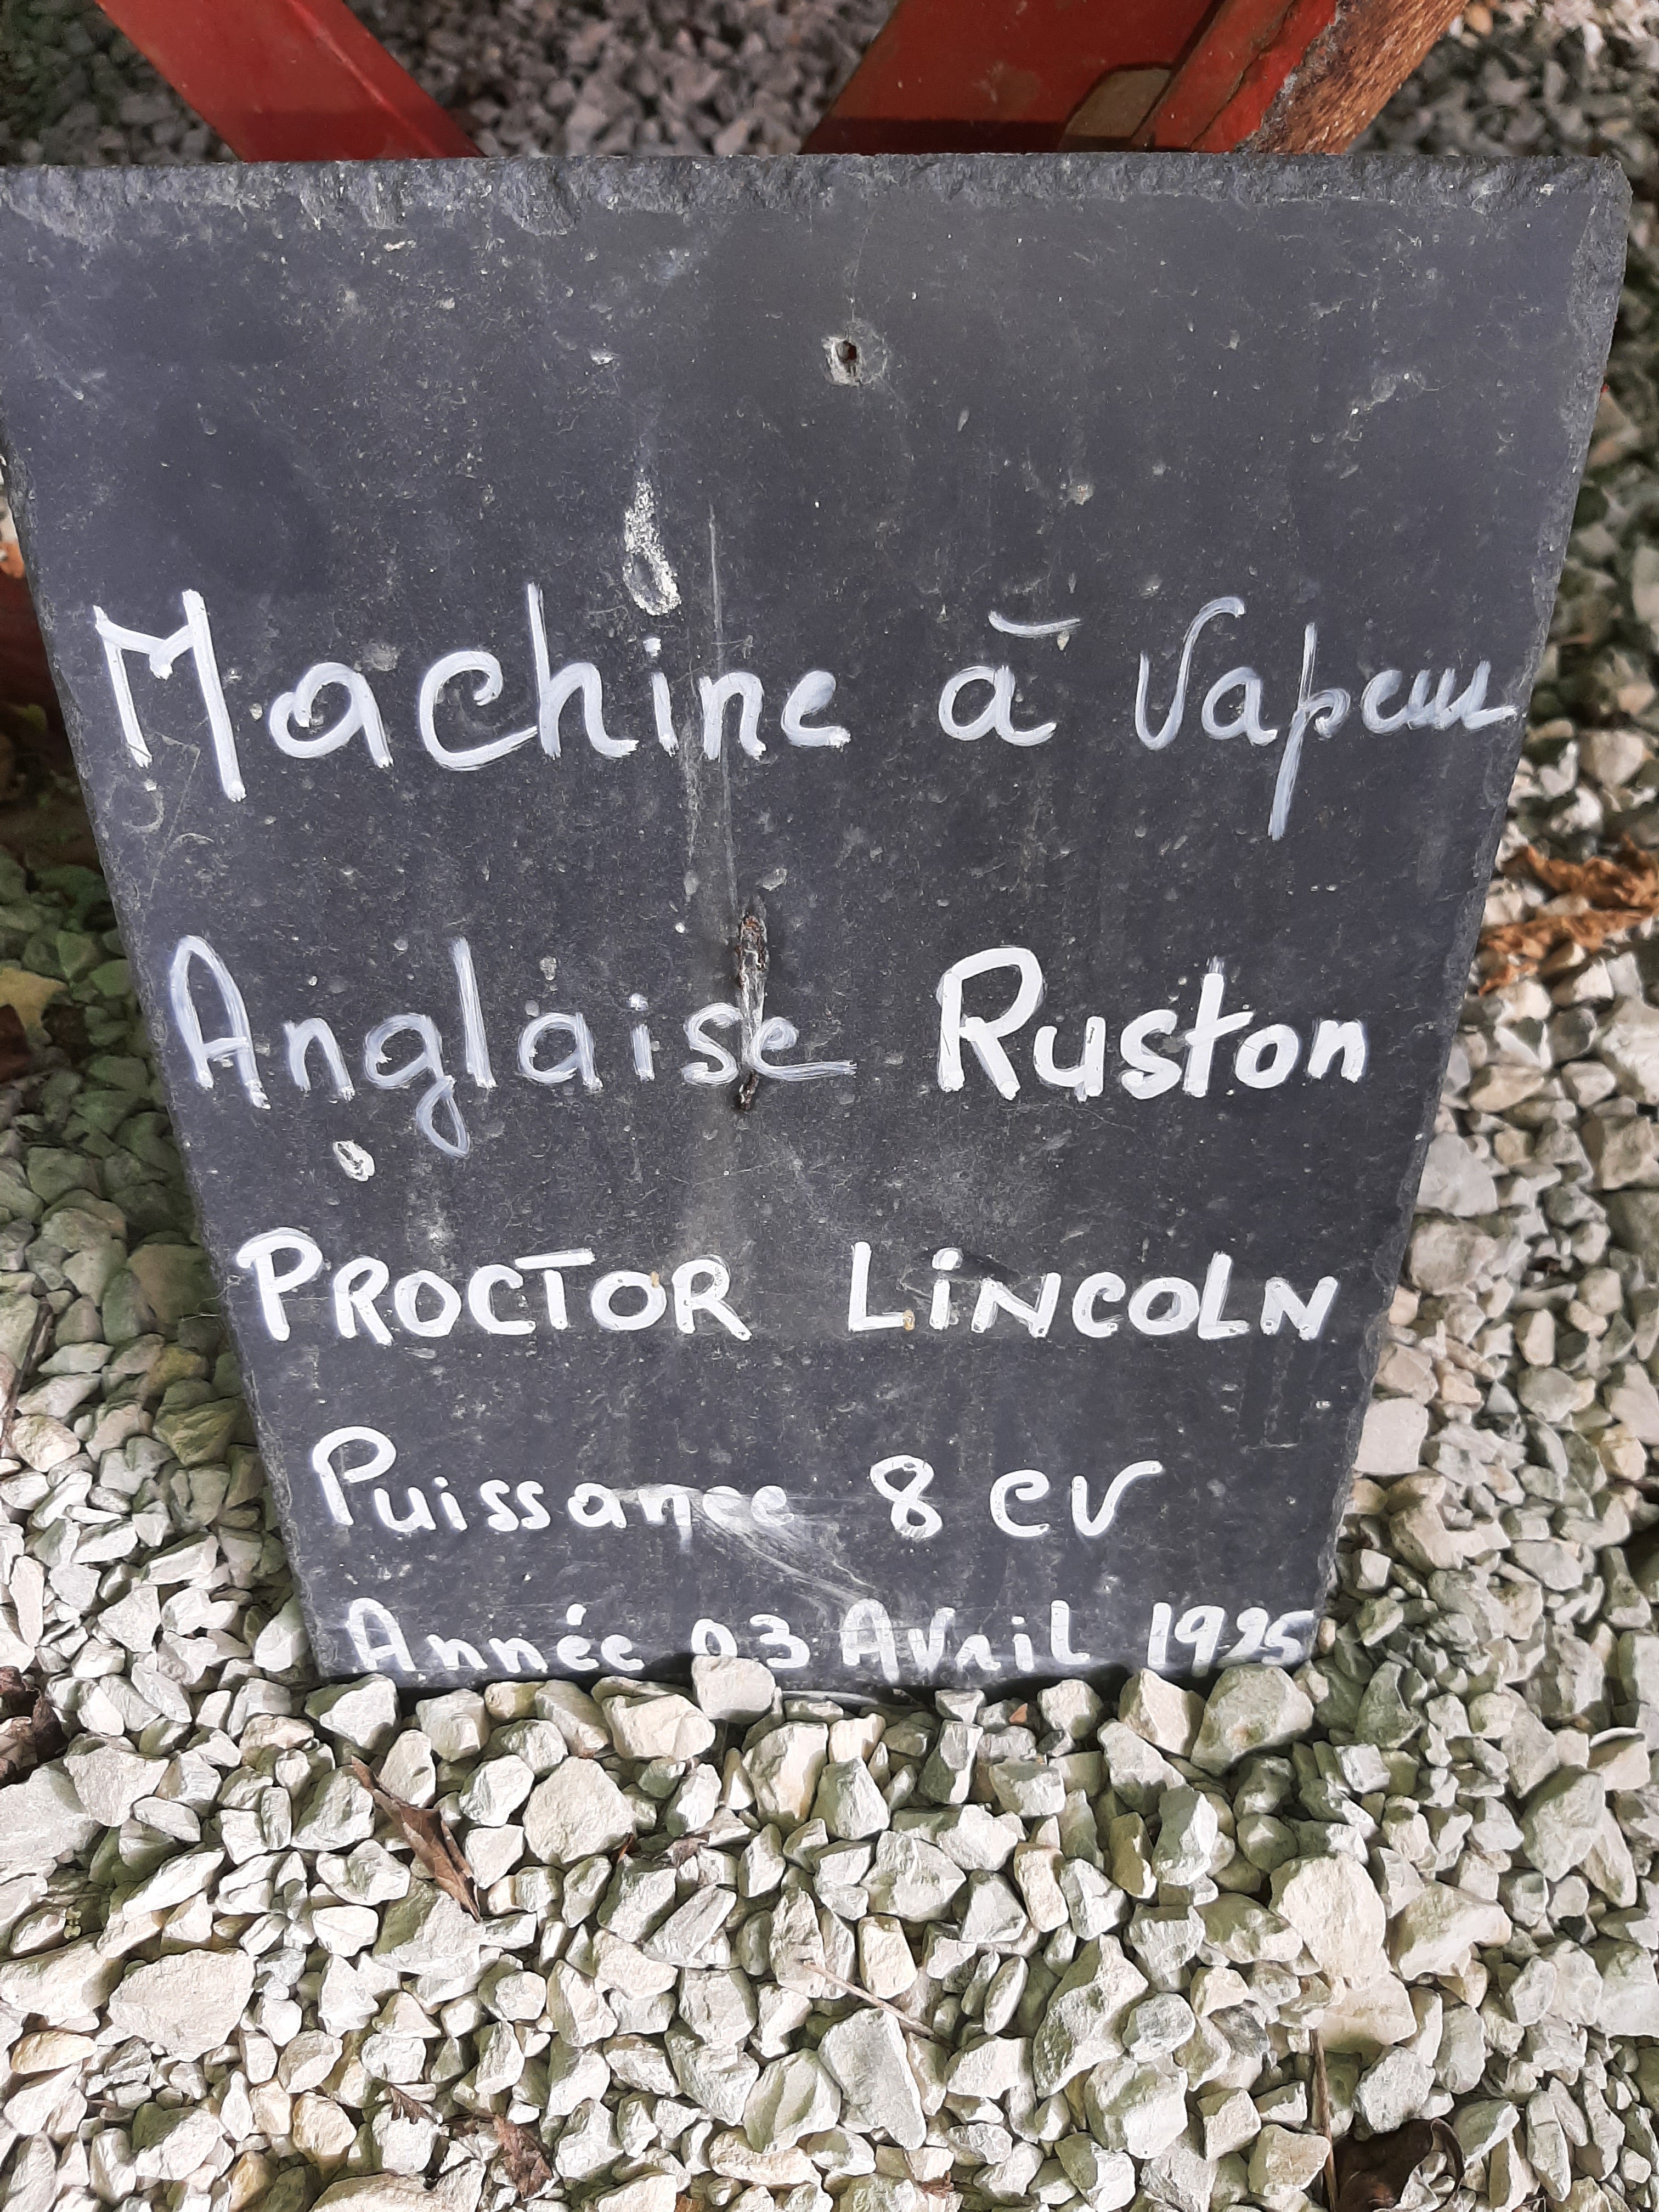 Machine à Vapeur
Anglaise Ruston
PROCTOR LiNCOLN
Puissance 8 cv
Année 03 Avril